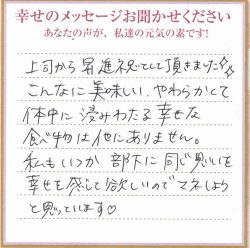 幸せのメッセージお聞かせください
あなたの声が、私達の元気の素です!
上司から昇進祝でして頂きました☆
こんなに美味しい、やわらかくて
体中に浸みわたる幸せな
食べ物は他にありません。
私もいつか部下に同じ思いを
幸せを感じて欲しいのでマネしよう
と思っています♡